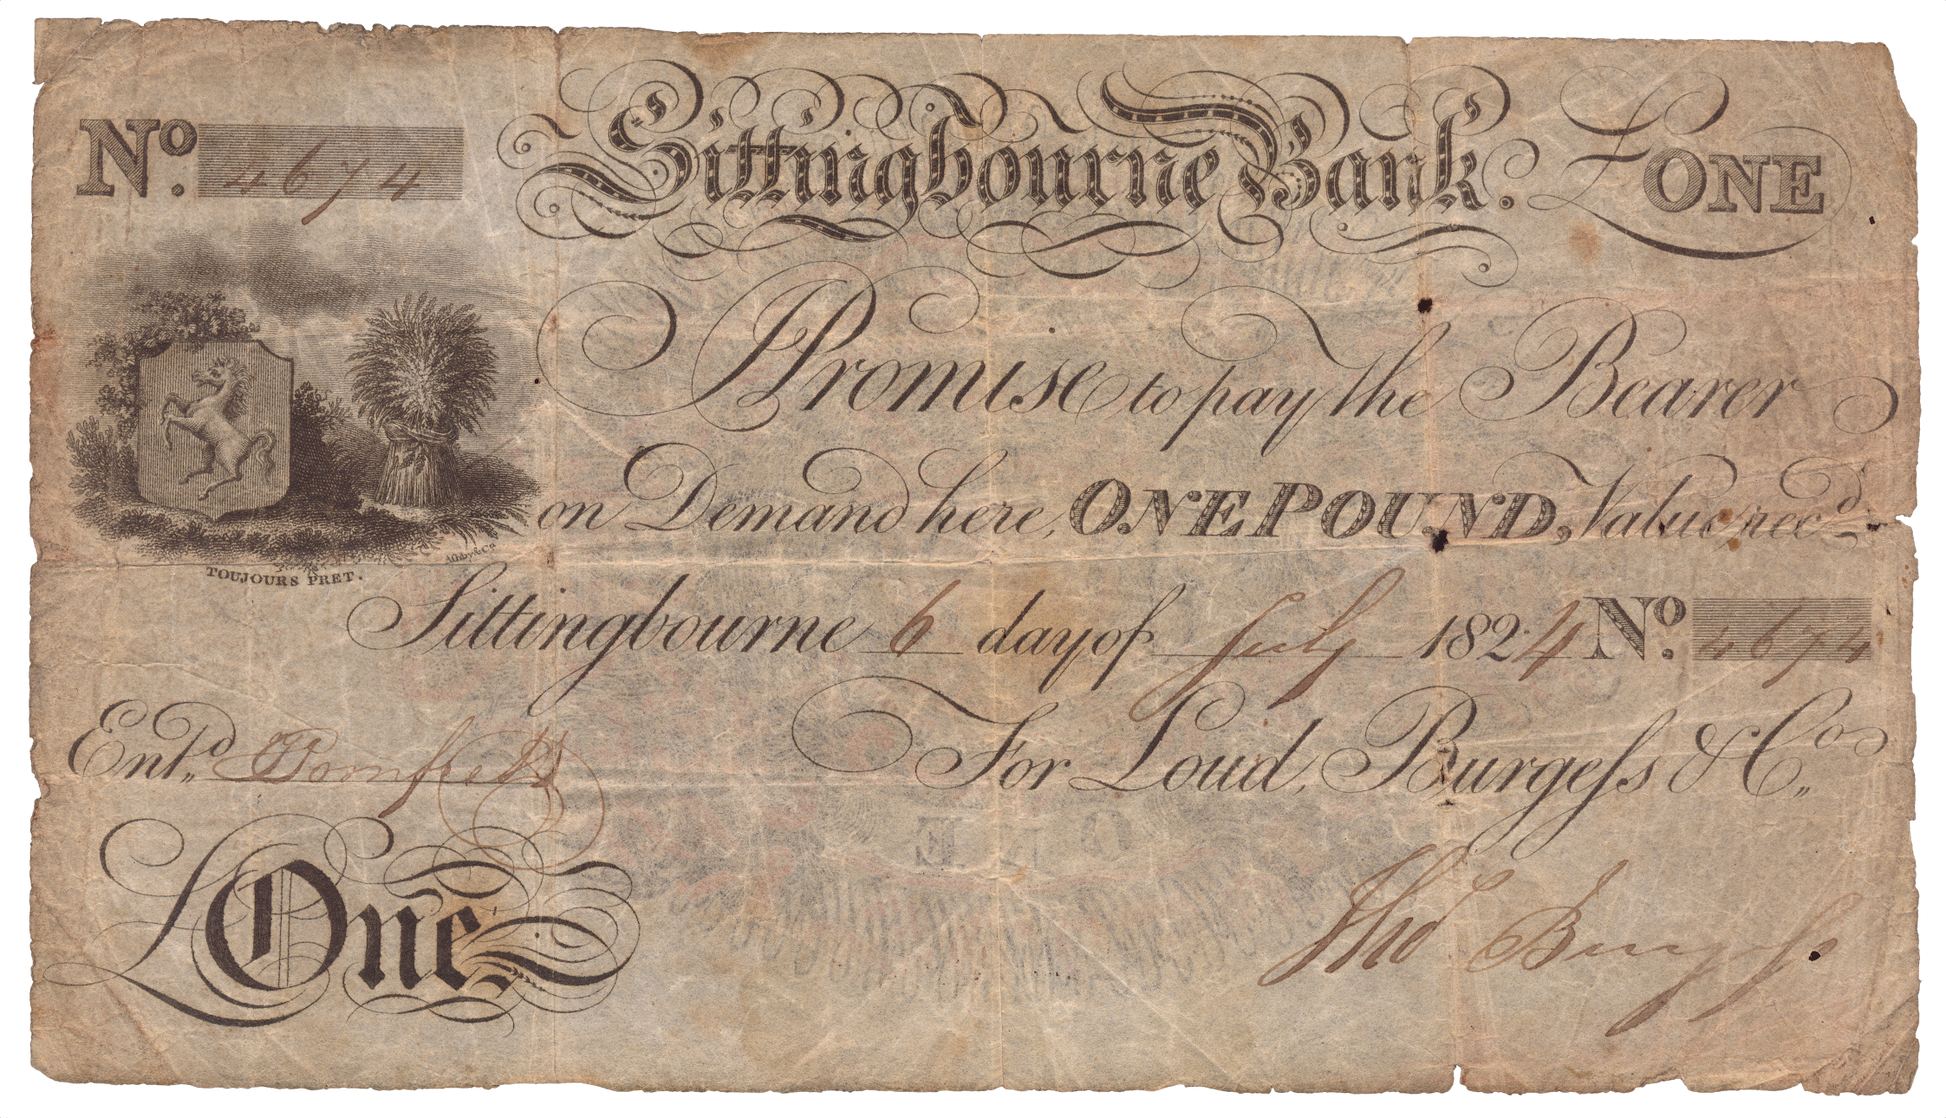 No. 4674 Sittingbourne Bank. £ONE
I Promise to pay the Bearer
on Demand here, ONE POUND, Value rec.d
TOUJOURS PRET.
Sittingbourne 6 day of July 1824 No. 4674
Ent.d Bomfrett For Loud, Burgeſs & Co.
£One Thos Burgeſs